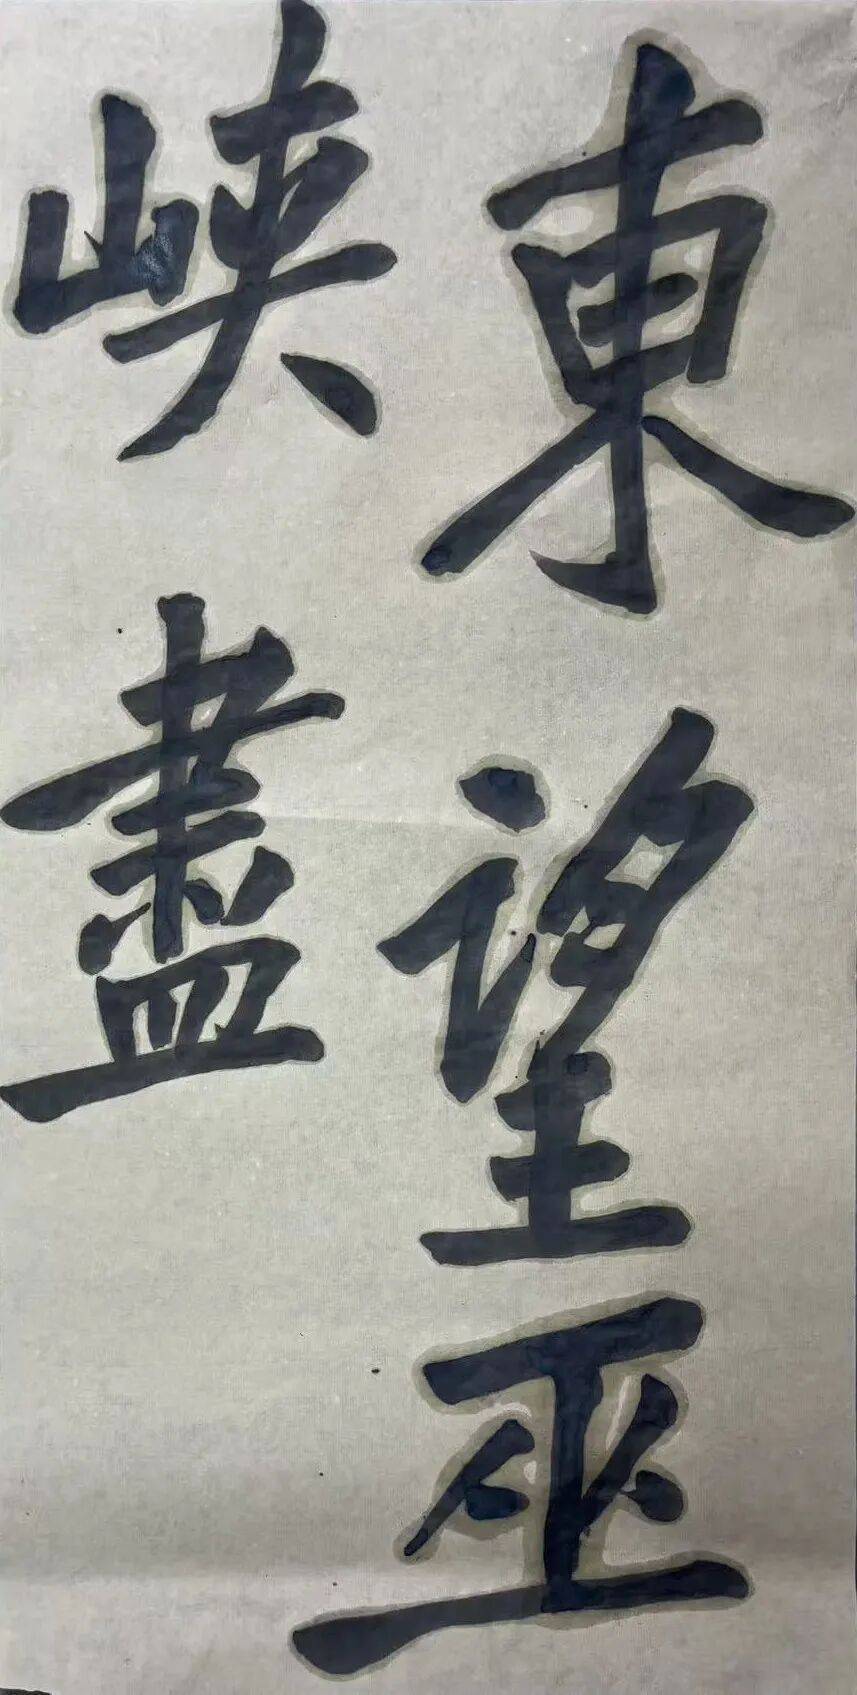 東望巫
峽盡